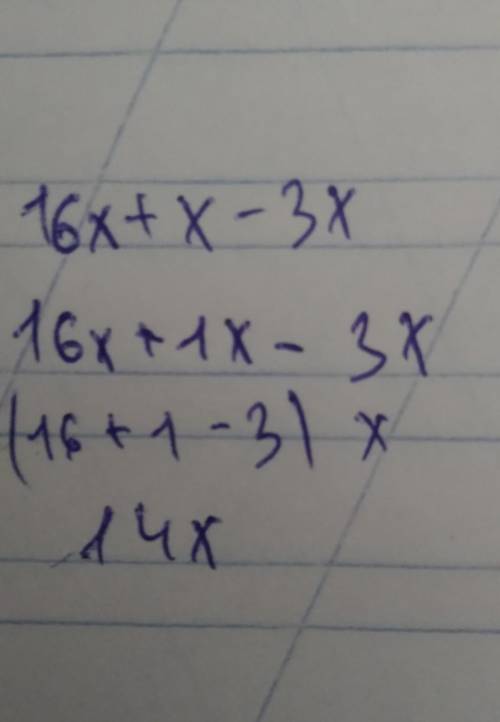 16x+x-3x
16x+1x-3x
(16+1-3) x
14x